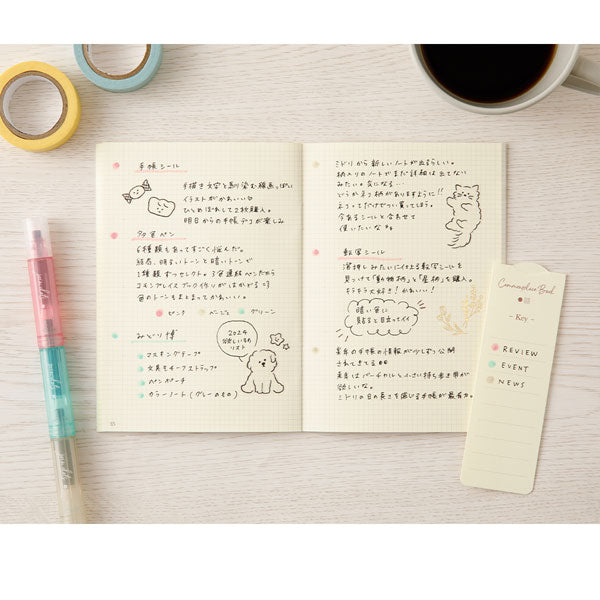 手帳シール
手描き文字と馴染む線画っぽい
イラストがかわいい
ひとめぼれして2枚購入。
明日からの手帳デコが楽しみ
多色ペン
6種類もあってすごく悩んだ。
結局、明るいトーンと暗いトーンで
1種類ずつセレクト。3色連結ペンだから
コモンプレイスブック作りがはかどる
色のトーンもまとまってかわいい。
ピンク ベージュ グリーン
みどり博
マスキングテープ
文具モチーフストラップ
ペンポーチ
カラーノート(グレーのもの)
2024
欲しいもの
リスト
55
ミドリから新しいノートが出るらしい。
柄入りのノートでまだ詳細は出てない
みたい。気になる…
どうかネコ柄がありますように!!
ネコってだけでつい買ってしまう。
今あるシールと合わせて
使いたいな
転写シール
箔押しみたいに仕上がる転写シールを
見つけて「動物柄」と「星柄」を購入。
キラキラ大好き!かわいい!
暗い色に
貼ると目立ってイイ
来年の手帳の情報が少しずつ公開
されてきてる
来年はバーチカルと小さい持ち歩き用が
欲しいな。
ミドリの日の長さを感じる手帳が最有力。
Commonplace Book
- Key -
REVIEW
EVENT
NEWS